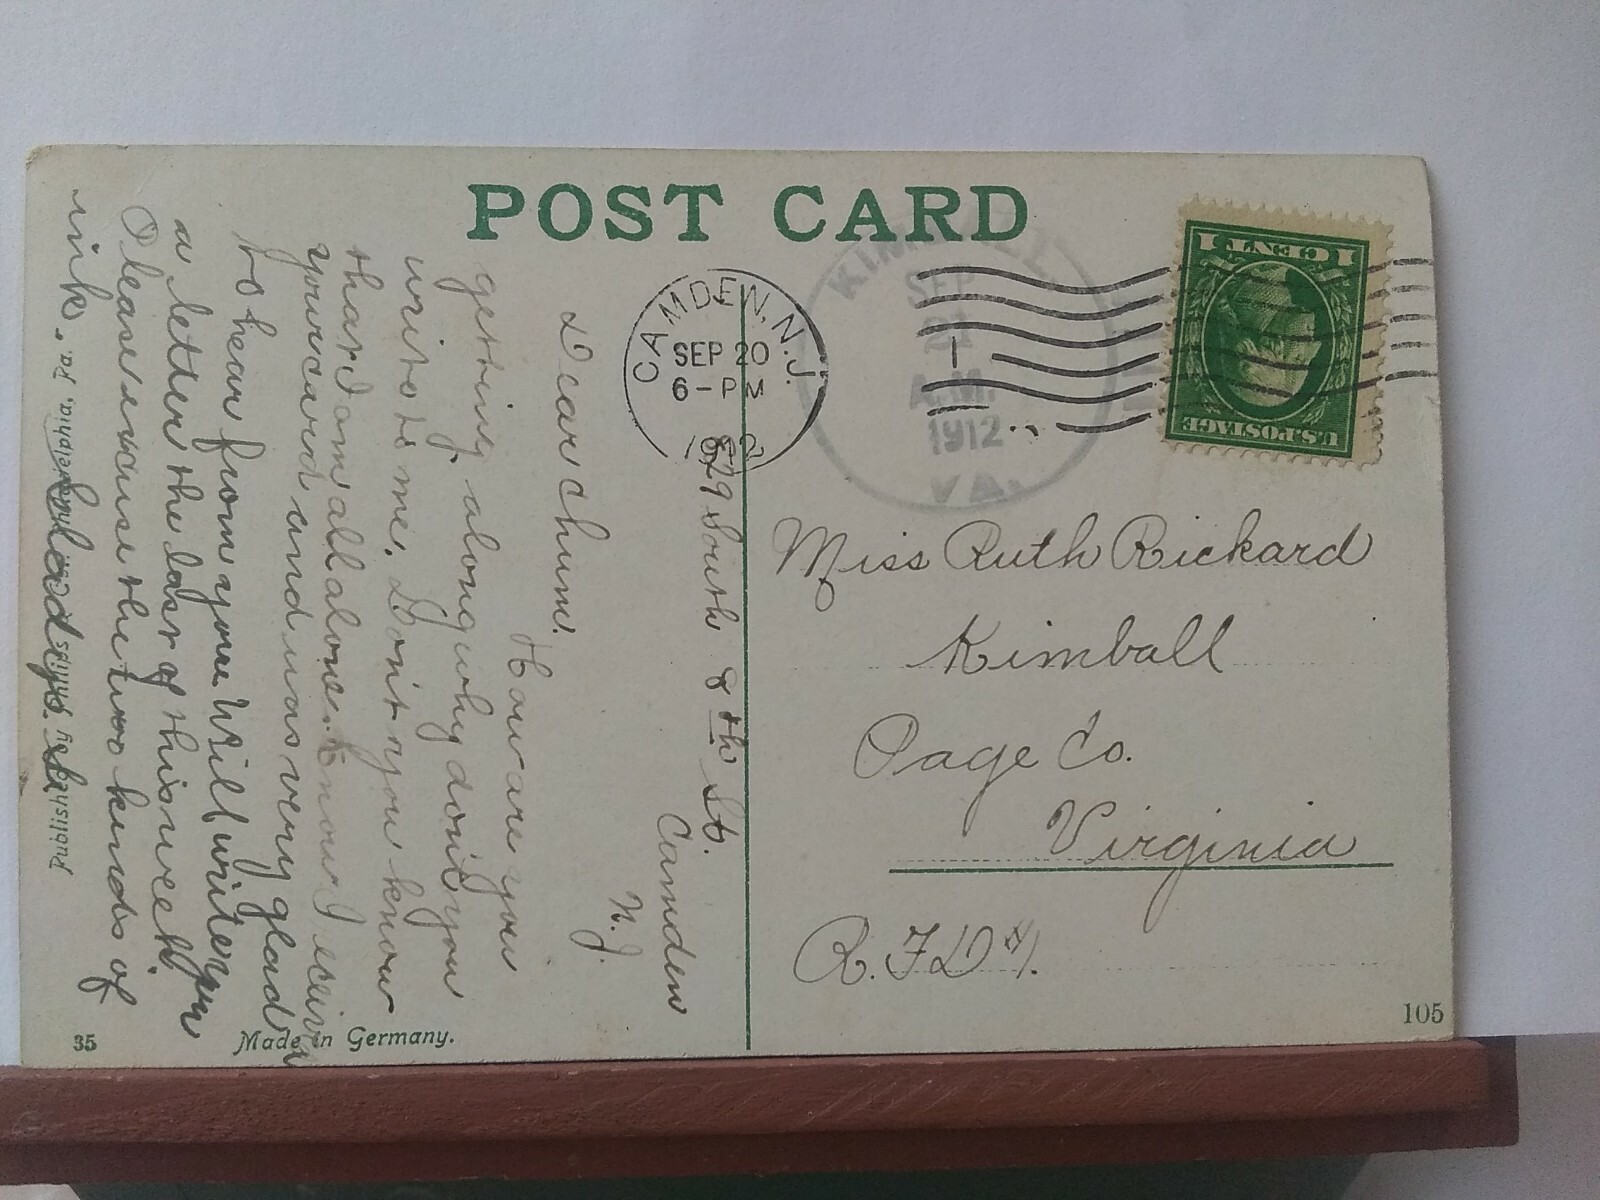 POST CARD
CAMDEN, N.J.
SEP 20
6-PM
1912
KIMBALL
SEP
21
A.M.
1912
VA.
1 CENT 1
U.S. POSTAGE
Miss Ruth Rickard
Kimball
Page Co.
Virginia
R.F.D
105
829 South 8th St.
Camden
N.J.
Dear Chum.
How are you
getting along why don't you
write to me. Don't you know
that I am all alone.
your card and was very glad
to hear from you Will write you
a letter the last of this week
Please excuse the two kinds of
ink.
Gladys.
Made in Germany.
35